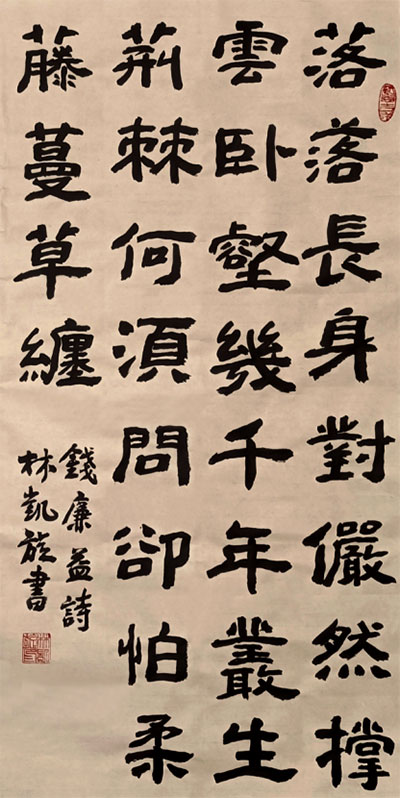 落落長身對儼然撐
雲臥壑幾千年叢生
荊棘何須問卻怕柔
藤蔓草纏
錢廉益詩
林凱旋書